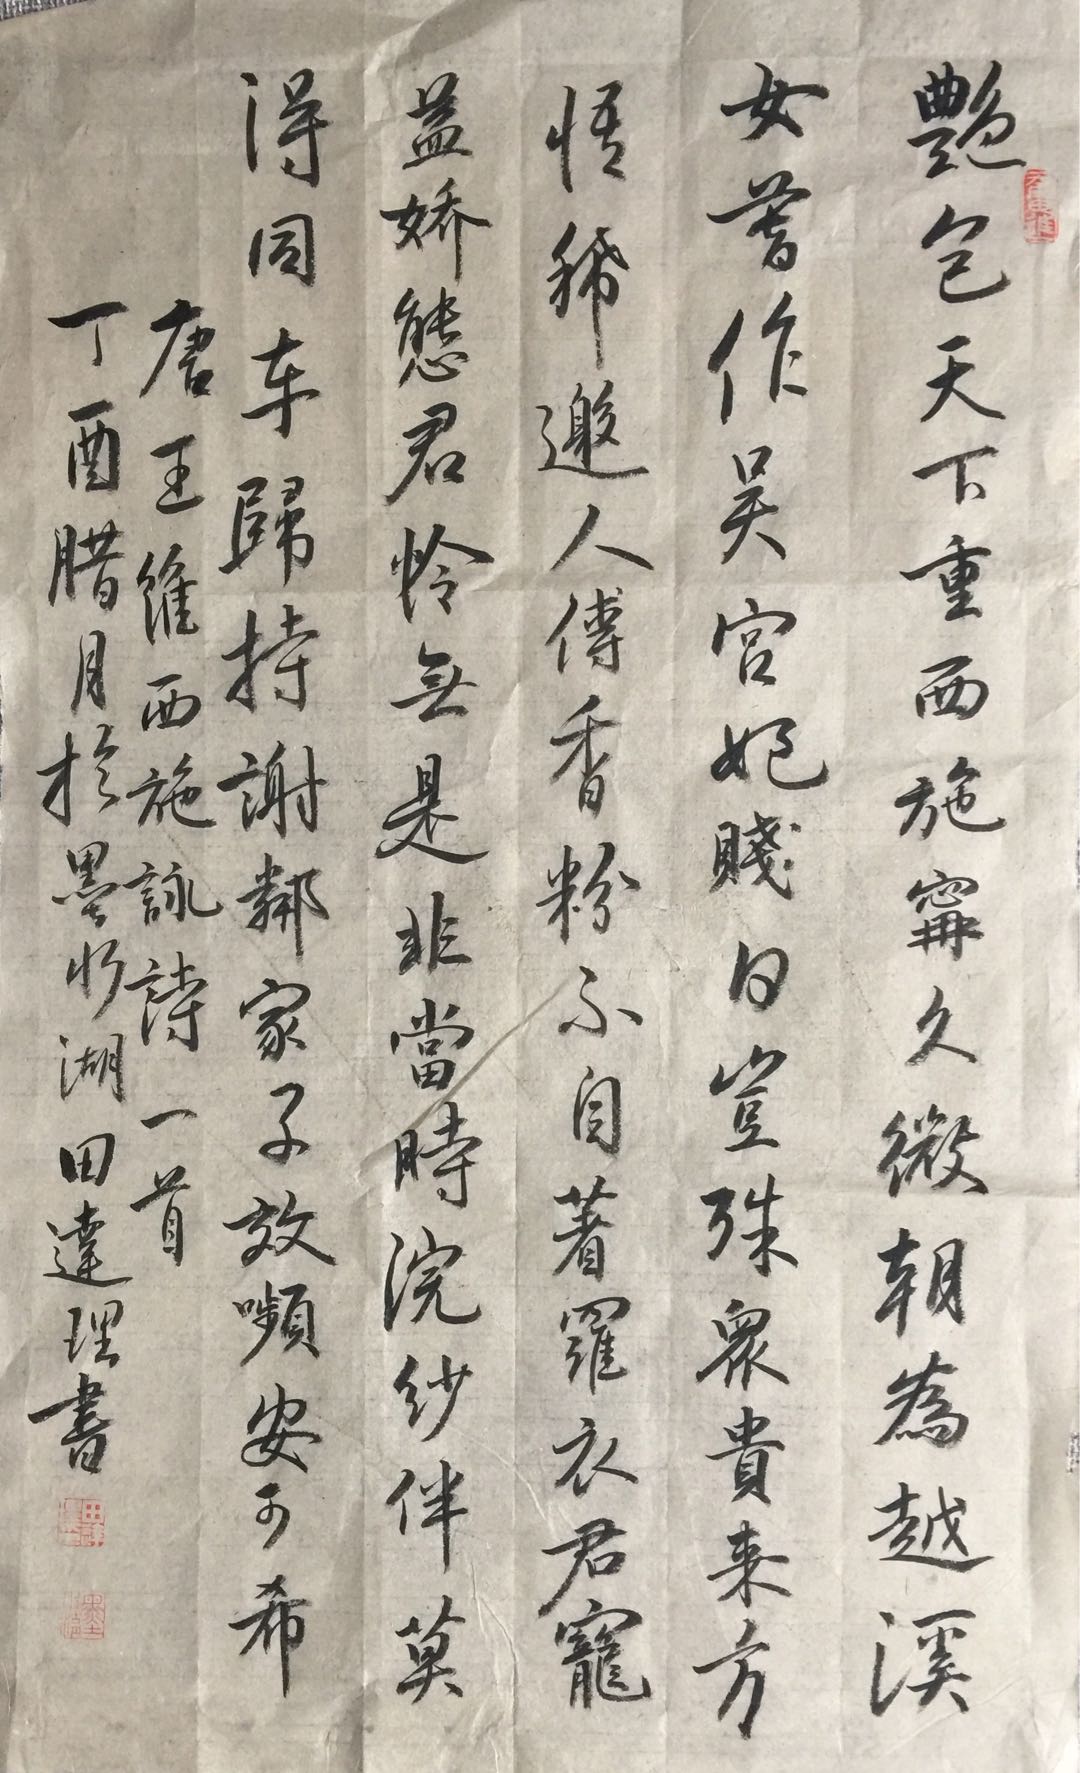 艷色天下重西施寧久微朝為越溪
女暮作吳宮妃賤日豈殊眾貴来方
悟稀邀人傅香粉不自著羅衣君寵
益嬌態君怜無是非當時浣紗伴莫
得同车歸持謝鄰家子效嚬安可希
唐王維西施詠詩一首
丁酉腊月於墨水湖田達理書